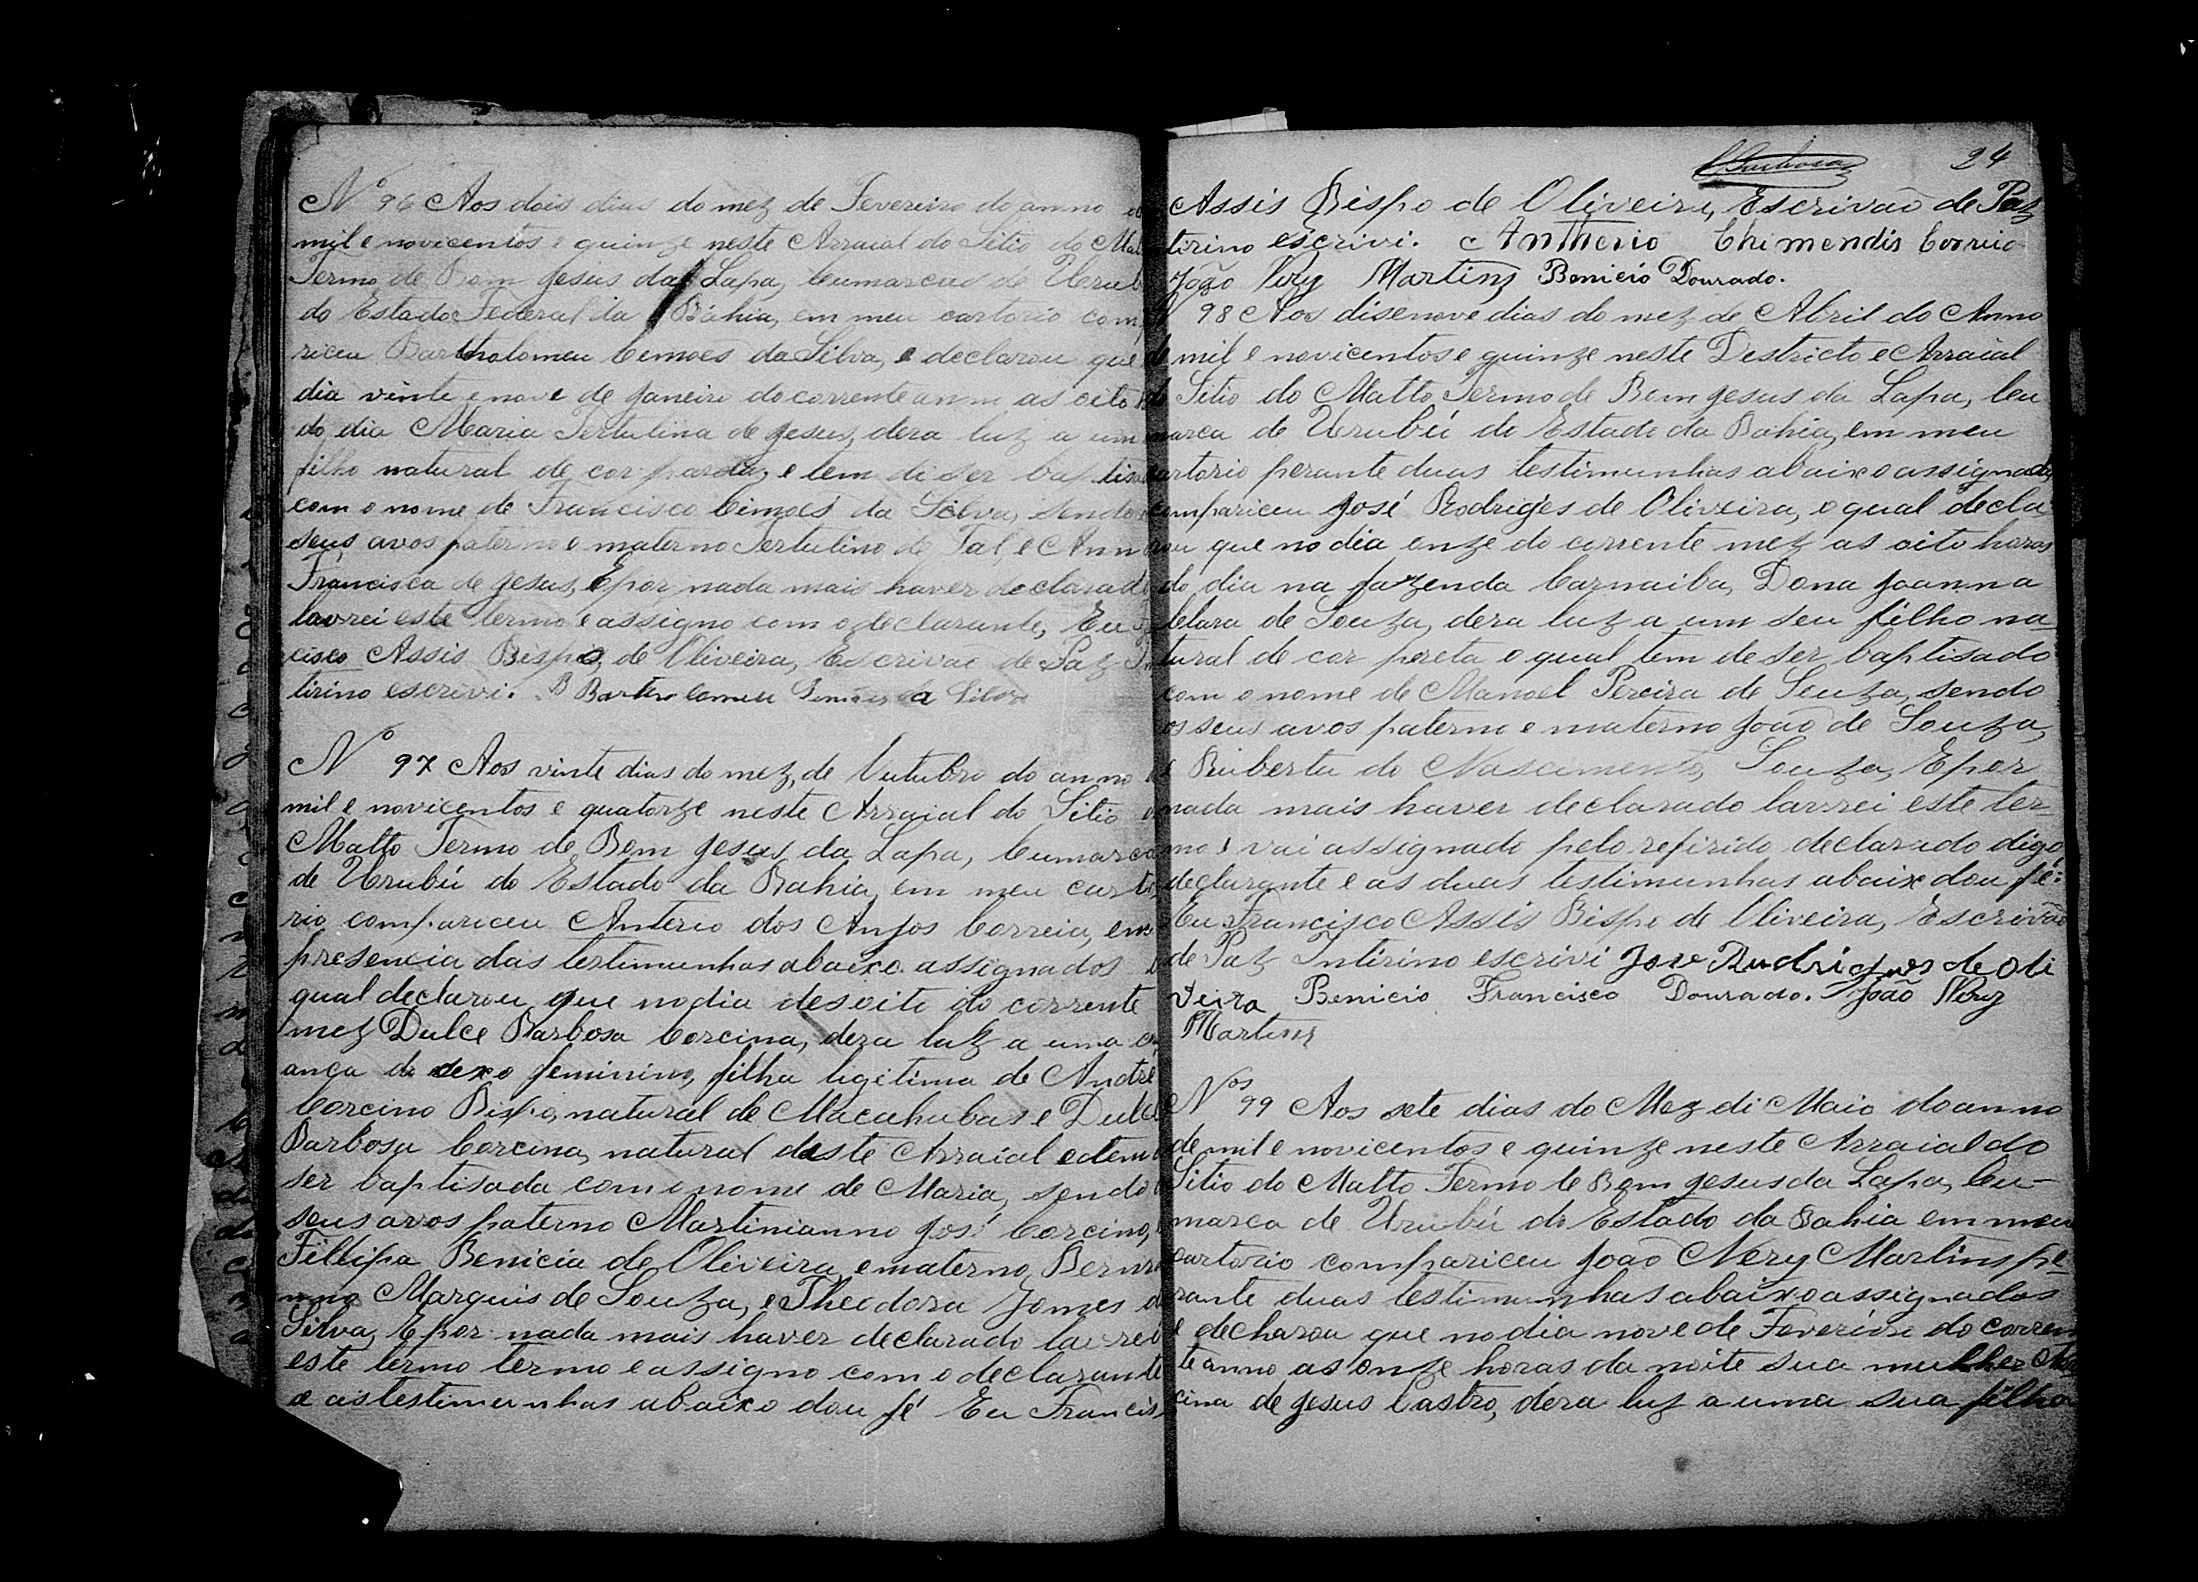 Nº 96 Aos dois dias do mez de Fevereiro do anno de
mil e novicentos e quinze neste Arraial do Sitio do Mat
Termo de Bom Jesus da Lapa, Cumarcao de Urub
do Estado Federal da Bahia, em meu cartorio com
riceu Bartholomeu Cimoes da Silva, e declarou que
dia vinte e nove de Janeiro do corrente anno as oito
do dia Maria Tertulina de Jesus, dera luz a um
filho natural de cor parda, e tem di ser baptisa
com o nome de Francisco Cimoes da Silva, sendo
seus avos paterno e materno Tertulino de Tal, e Ann
Francisca de Jesus, E por nada mais haver declarad
lavrei este termo e assigno com o declarante, Eu
cisco Assis Bispo de Oliveira, Escrivão de Paz In
tirino escrivi. Bartholomeu Simões da Silva
Nº 97 Aos vinte dias do mez, de Outubro do anno de
mil e novicentos e quatorze neste Arraial do Sitio
Matto Termo de Bom Jesus da Lapa, Cumarca
de Urubú do Estado da Bahia, em meu carto
rio compariceu Anterio dos Anjos Correia, em
presencia das testimunhas abaixo assignados
qual declarou que no dia desoito do corrente
mez Dulce Barbosa Corcina, dera luz a uma cri
ança do sexo feminino, filha ligitima de André
Corcino Bispo, natural de Macahubas e Dulce
Barbosa Corcina, natural deste Arraial e tem
ser baptisada com o nome de Maria, sendo
seus avos paterno Martinianno José Corcino,
Fillipa Benicia de Oliveira, e materno, Berna
nno Marquis de Souza, e Theodora Gomes d
Silva, E por nada mais haver declarado lavrei
este termo termo e assigno com o declarante
e as testimunhas abaixo dou fé Eu Francis
24
Assis Bispo de Oliveira, Escrivão de Paz
tirino escrivi. Antherio Correia
João Nery Martins Benicio Dourado.
98 Aos disenove dias do mez de Abril do Anno
de mil e novicentos e quinze neste Destricto e Arraial
do Sitio do Matto Termo de Bom Jesus da Lapa, Cu
marca de Urubú do Estado da Bahia, em meu
cartorio perante duas testimunhas abaixo assignada
compariceu José Rodriges de Oliveira, o qual decla
rou que no dia onze do corrente mez as oito horas
do dia na fazenda Carnaiba, Dona Joanna
Clara de Souza, dera luz a um seu filho na
tural de cor preta o qual tem de ser baptisado
com o nome de Manoel Pereira de Souza, sendo
os seus avos paterno e materno João de Souza,
e Ruberta do Nascimento Souza, E por
nada mais haver declarado lavrei este ter
mo e vai assignado pelo refirido declarado digo
declarante e as duas testimunhas abaixo dou fé:
Eu Francisco Assis Bispo de Oliveira, Escrivão
de Paz Intirino escrivi Jose Rudrigues de Oli
veira Benicio Francisco Dourado. João Nery
Martins
Nos 99 Aos sete dias do Mez di Maio do anno
de mil e novicentos e quinze neste Arraial do
Sitio do Matto Termo de Bom Jesus da Lapa, Cu-
marca de Urubú do Estado da Bahia em meu
cartorio compariceu João Nery Martins pe
rante duas testimunhas abaixo assignadas
e decharou que no dia nove de Feverioro do corren
te anno as onze horas da noite sua mulher
cina de Jesus Castro, dera luz a uma sua filha